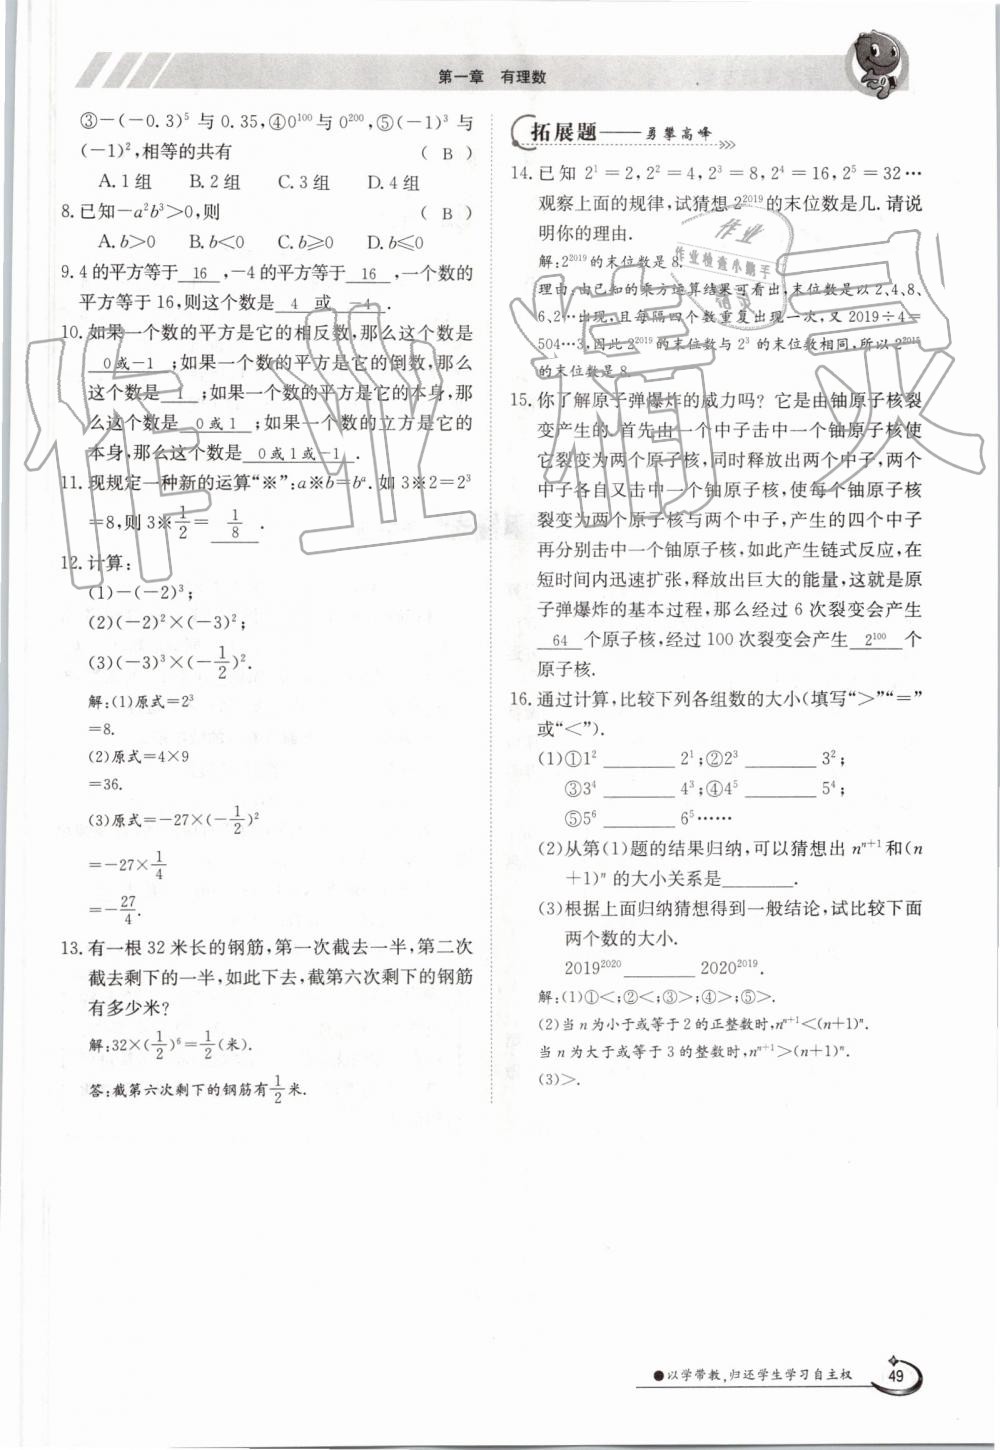 第一章 有理数
③-(-0.3)⁵ 与 0.35,④0¹⁰⁰与 0²⁰⁰,⑤(-1)³ 与
(-1)²,相等的共有 ( B )
A.1 组 B.2 组 C.3 组 D.4 组
8.已知-a²b³>0,则 ( B )
A.b>0 B.b<0 C.b≥0 D.b≤0
9.4 的平方等于 16 ,-4 的平方等于 16 ,一个数的
平方等于 16,则这个数是 4 或 -4 .
10.如果一个数的平方是它的相反数,那么这个数是
0 或-1 ;如果一个数的平方是它的倒数,那么
这个数是 1 ;如果一个数的平方是它的本身,那
么这个数是 0 或 1 ;如果一个数的立方是它的
本身,那么这个数是 0 或 1 或-1 .
11.现规定一种新的运算“※”:a※b=bᵃ.如 3※2=2³
=8,则 3※1/2= 1/8 .
12.计算:
(1)-(-2)³;
(2)(-2)²×(-3)²;
(3)(-3)³×(-1/2)².
解:(1)原式=2³
=8.
(2)原式=4×9
=36.
(3)原式=-27×(-1/2)²
=-27×1/4
=-27/4.
13.有一根 32 米长的钢筋,第一次截去一半,第二次
截去剩下的一半,如此下去,截第六次剩下的钢筋
有多少米?
解:32×(1/2)⁶=1/2(米).
答:截第六次剩下的钢筋有1/2米.
拓展题——勇攀高峰
14.已知 2¹=2,2²=4,2³=8,2⁴=16,2⁵=32…
观察上面的规律,试猜想 2²⁰¹⁹的末位数是几.请说
明你的理由.
解:2²⁰¹⁹的末位数是 8.
理由:由已知的乘方运算结果可看出,末位数是以 2、4、8、
6、2…出现,且每隔四个数重复出现一次,又 2019÷4=
504…3,因此 2²⁰¹⁹的末位数与 2³ 的末位数相同,所以 2²⁰¹⁹
的末位数是 8.
15.你了解原子弹爆炸的威力吗? 它是由铀原子核裂
变产生的.首先由一个中子击中一个铀原子核使
它裂变为两个原子核,同时释放出两个中子,两个
中子各自又击中一个铀原子核,使每个铀原子核
裂变为两个原子核与两个中子,产生的四个中子
再分别击中一个铀原子核,如此产生链式反应,在
短时间内迅速扩张,释放出巨大的能量,这就是原
子弹爆炸的基本过程,那么经过 6 次裂变会产生
64 个原子核,经过 100 次裂变会产生 2¹⁰⁰ 个
原子核.
16.通过计算,比较下列各组数的大小(填写“>”“=”
或“<”).
(1)①1² ________ 2¹;②2³ ________ 3²;
③3⁴ ________ 4³;④4⁵ ________ 5⁴;
⑤5⁶ ________ 6⁵……
(2)从第(1)题的结果归纳,可以猜想出 nⁿ⁺¹和(n
+1)ⁿ 的大小关系是________.
(3)根据上面归纳猜想得到一般结论,试比较下面
两个数的大小.
2019²⁰²⁰ ________ 2020²⁰¹⁹.
解:(1)①<;②<;③>;④>;⑤>.
(2)当 n 为小于或等于 2 的正整数时,nⁿ⁺¹<(n+1)ⁿ.
当 n 为大于或等于 3 的整数时,nⁿ⁺¹>(n+1)ⁿ.
(3)>.
作业
作业检查小助手
精灵
作业精灵
●以学带教,归还学生学习自主权
49